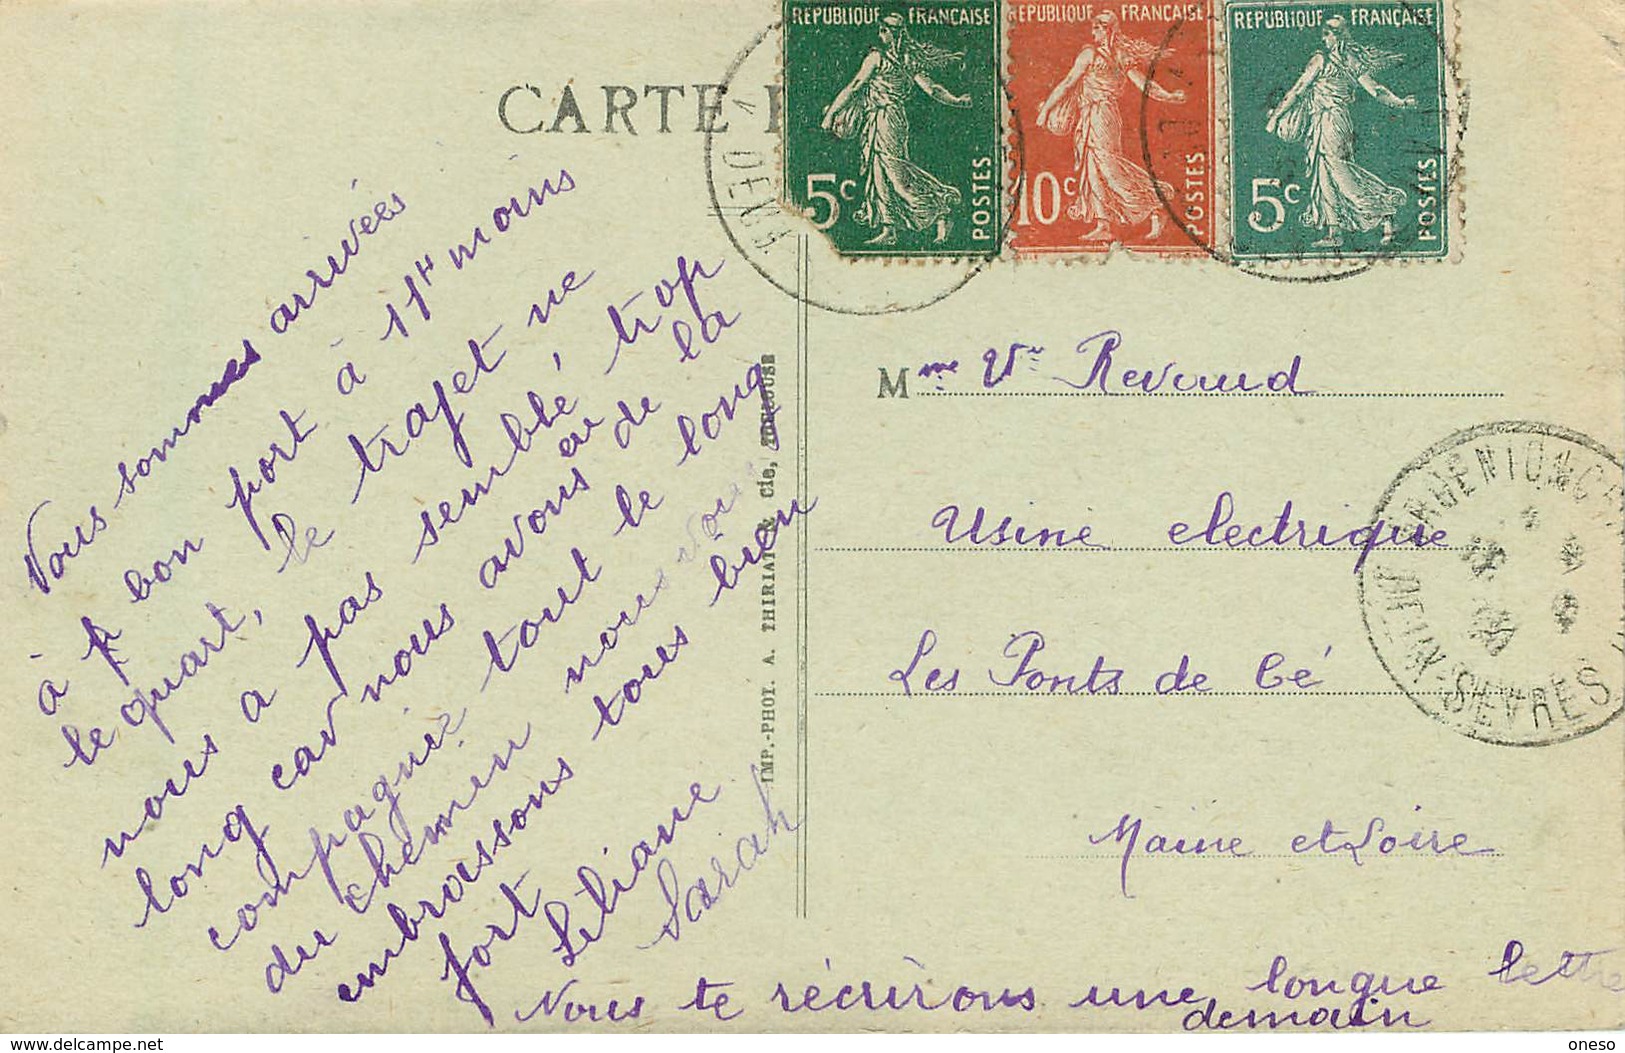 CARTE
RÉPUBLIQUE FRANÇAISE
5c
POSTES
RÉPUBLIQUE FRANÇAISE
10c
POSTES
RÉPUBLIQUE FRANÇAISE
5c
POSTES
Nous sommes arrivées
à p bon port à 11H moins
le quart, le trajet ne
nous a pas semblé trop
long car nous avons eu de la
compagnie tout le long
du chemin nous vous
embrassons tous bien
fort
Liliane
Sarah
Nous te récrirons une longue lettre
demain
IMP.-PHOT. A. THIRIAT & Cie, TOULOUSE
Mme Vve Revaud
Usine electrique
Les Ponts de Cé
Maine et Loire
ARGENTON
DEUX-SEVRES
www.delcampe.net
oneso